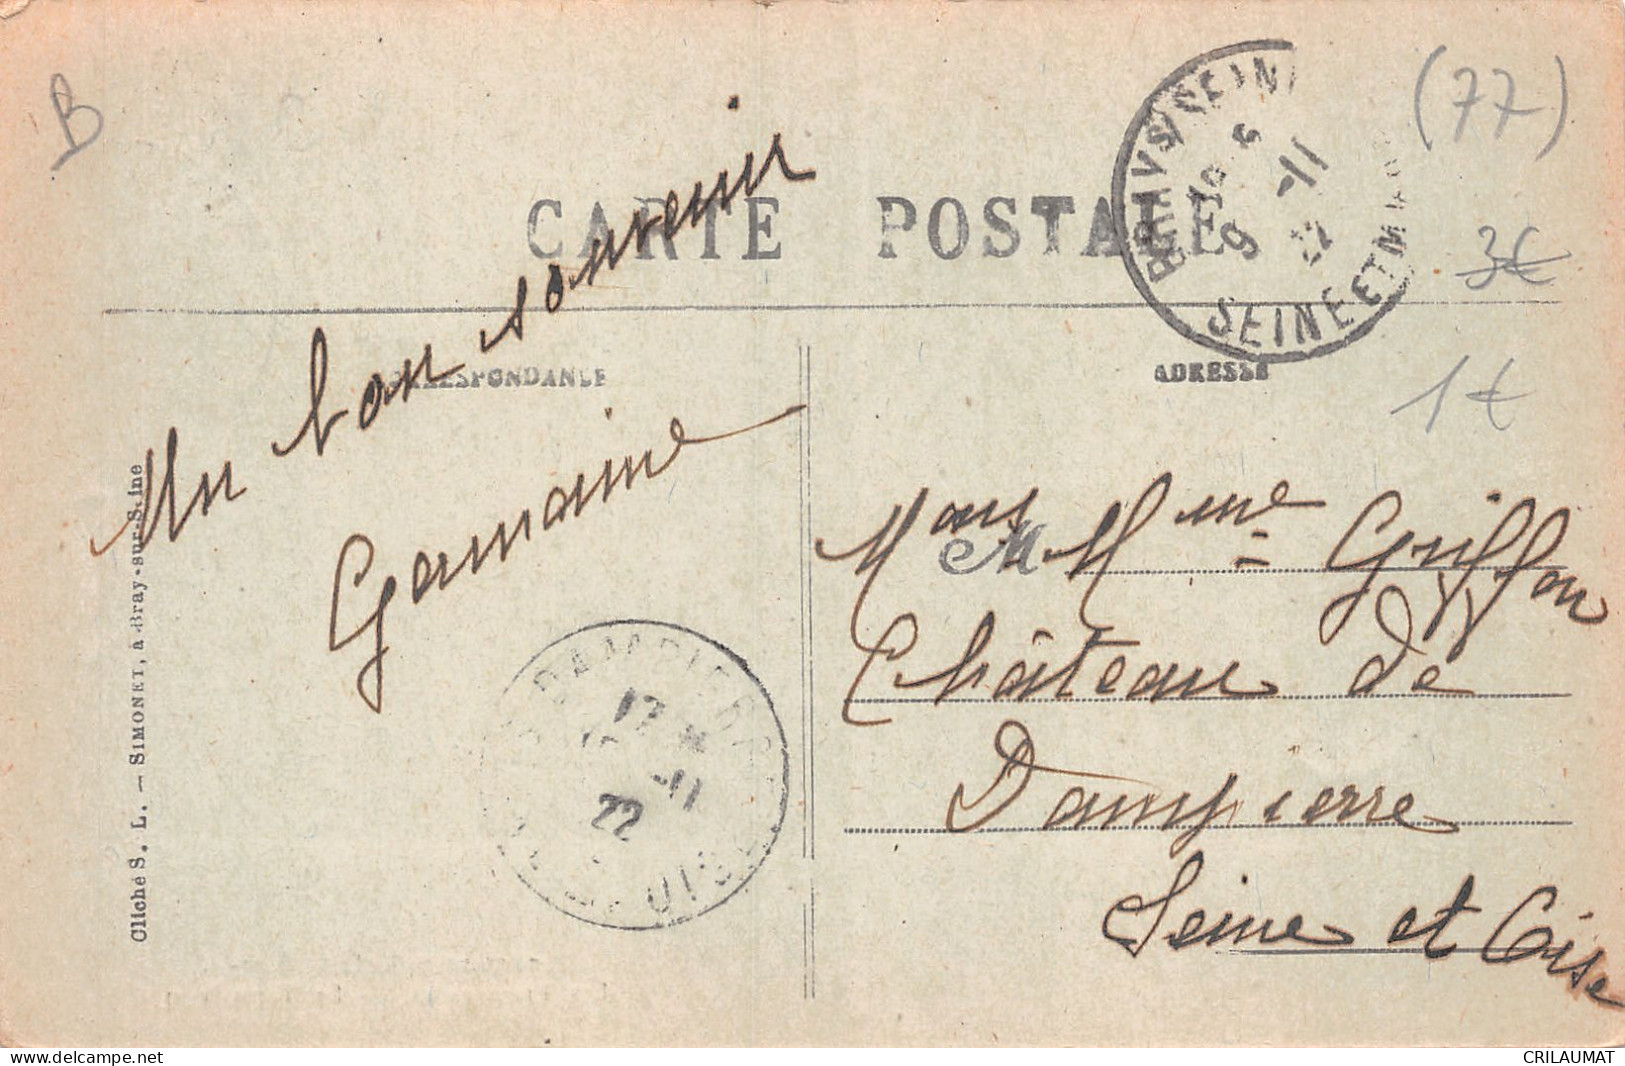 B
(77)
CARTE POSTALE
BRAY S/SEINE
9 -11
SEINE ET M
3€
CORRESPONDANCE
ADRESSE
1€
Un bon souvenir
Germaine
Mons M Mme Griffon
Château de
Dampierre
Seine et Oise
DAMPIERRE
17
-11
22
OISE
Cliché S. L. — SIMONET, à Bray-sur-Seine
CRILAUMAT